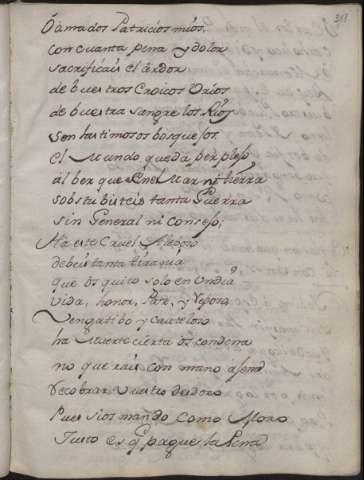 311
O amados Patricios mios,
con cuanta pena y dolor
sacrificais el ardor
de buestros eroicos brios
de buestra sangre los Rios
son lastimosos bosquejos.
el Mundo queda perplejo
al ber que en el Mar ni tierra
sostubisteis tanta Guerra
sin General ni consejo,
A este cruel
debeis tanta tirania
que os quito solo en un dia
vida, honor, Paz, y reposo
Vengatibo y cauteloso
ha Muerte cierta os condena
no querais con mano agena
recobrar vuestro desdoro
Pues si os mando como Moro
Justo es q pague la Pena